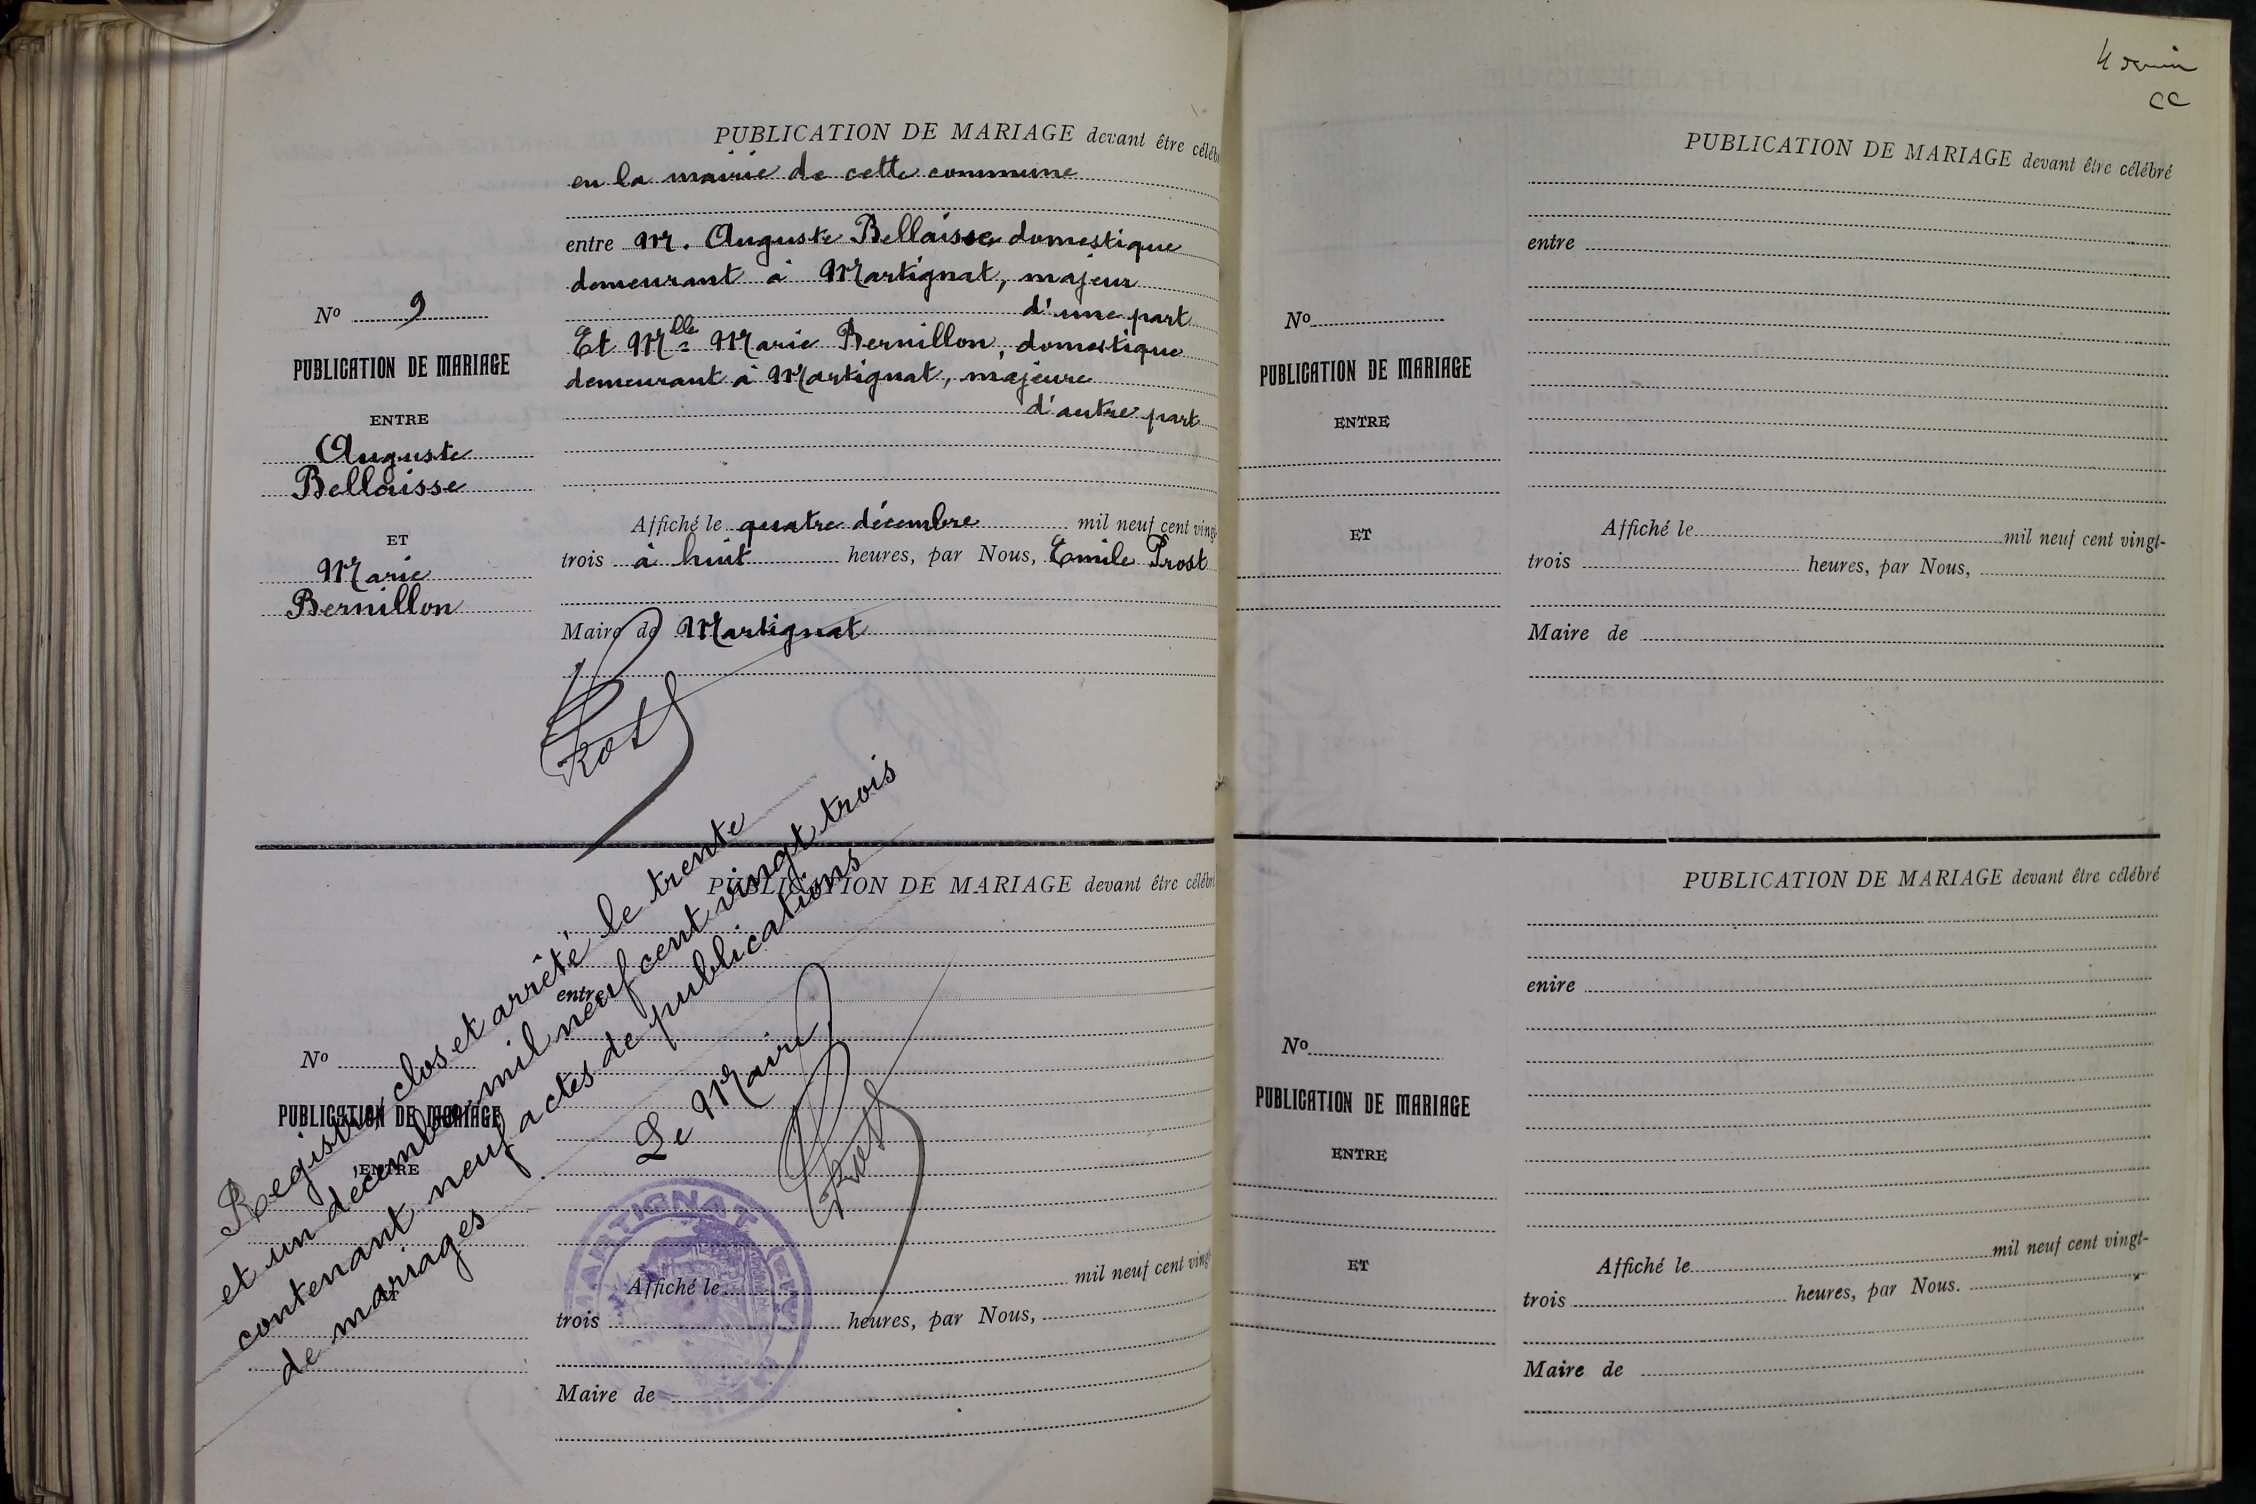 PUBLICATION DE MARIAGE devant être céléb
en la mairie de cette commune
entre M. Auguste Bellaisse domestique
demeurant à Martignat, majeur
d'une part
Et Mlle Marie Bernillon, domestique
demeurant à Martignat, majeure
d'autre part
Affiché le quatre décembre mil neuf cent vingt
trois à huit heures, par Nous, Emile Prost
Maire de Martignat
Prost
No 9
PUBLICATION DE MARIAGE
ENTRE
Auguste
Bellaisse
ET
Marie
Bernillon
PUBLICATION DE MARIAGE devant être célébré
entre
No
PUBLICATION DE MARIAGE
ENTRE
ET
Affiché le mil neuf cent vingt
trois heures, par Nous,
Maire de
Registre, clos et arrêté le trente
et un décembre mil neuf cent vingt trois
contenant neuf actes de publications
de mariages
Le Maire
Prost
MARTIGNAT
cc
PUBLICATION DE MARIAGE devant être célébré
entre
No
PUBLICATION DE MARIAGE
ENTRE
ET
Affiché le mil neuf cent vingt-
trois heures, par Nous,
Maire de
PUBLICATION DE MARIAGE devant être célébré
enire
No
PUBLICATION DE MARIAGE
ENTRE
ET
Affiché le mil neuf cent vingt-
trois heures, par Nous.
Maire de